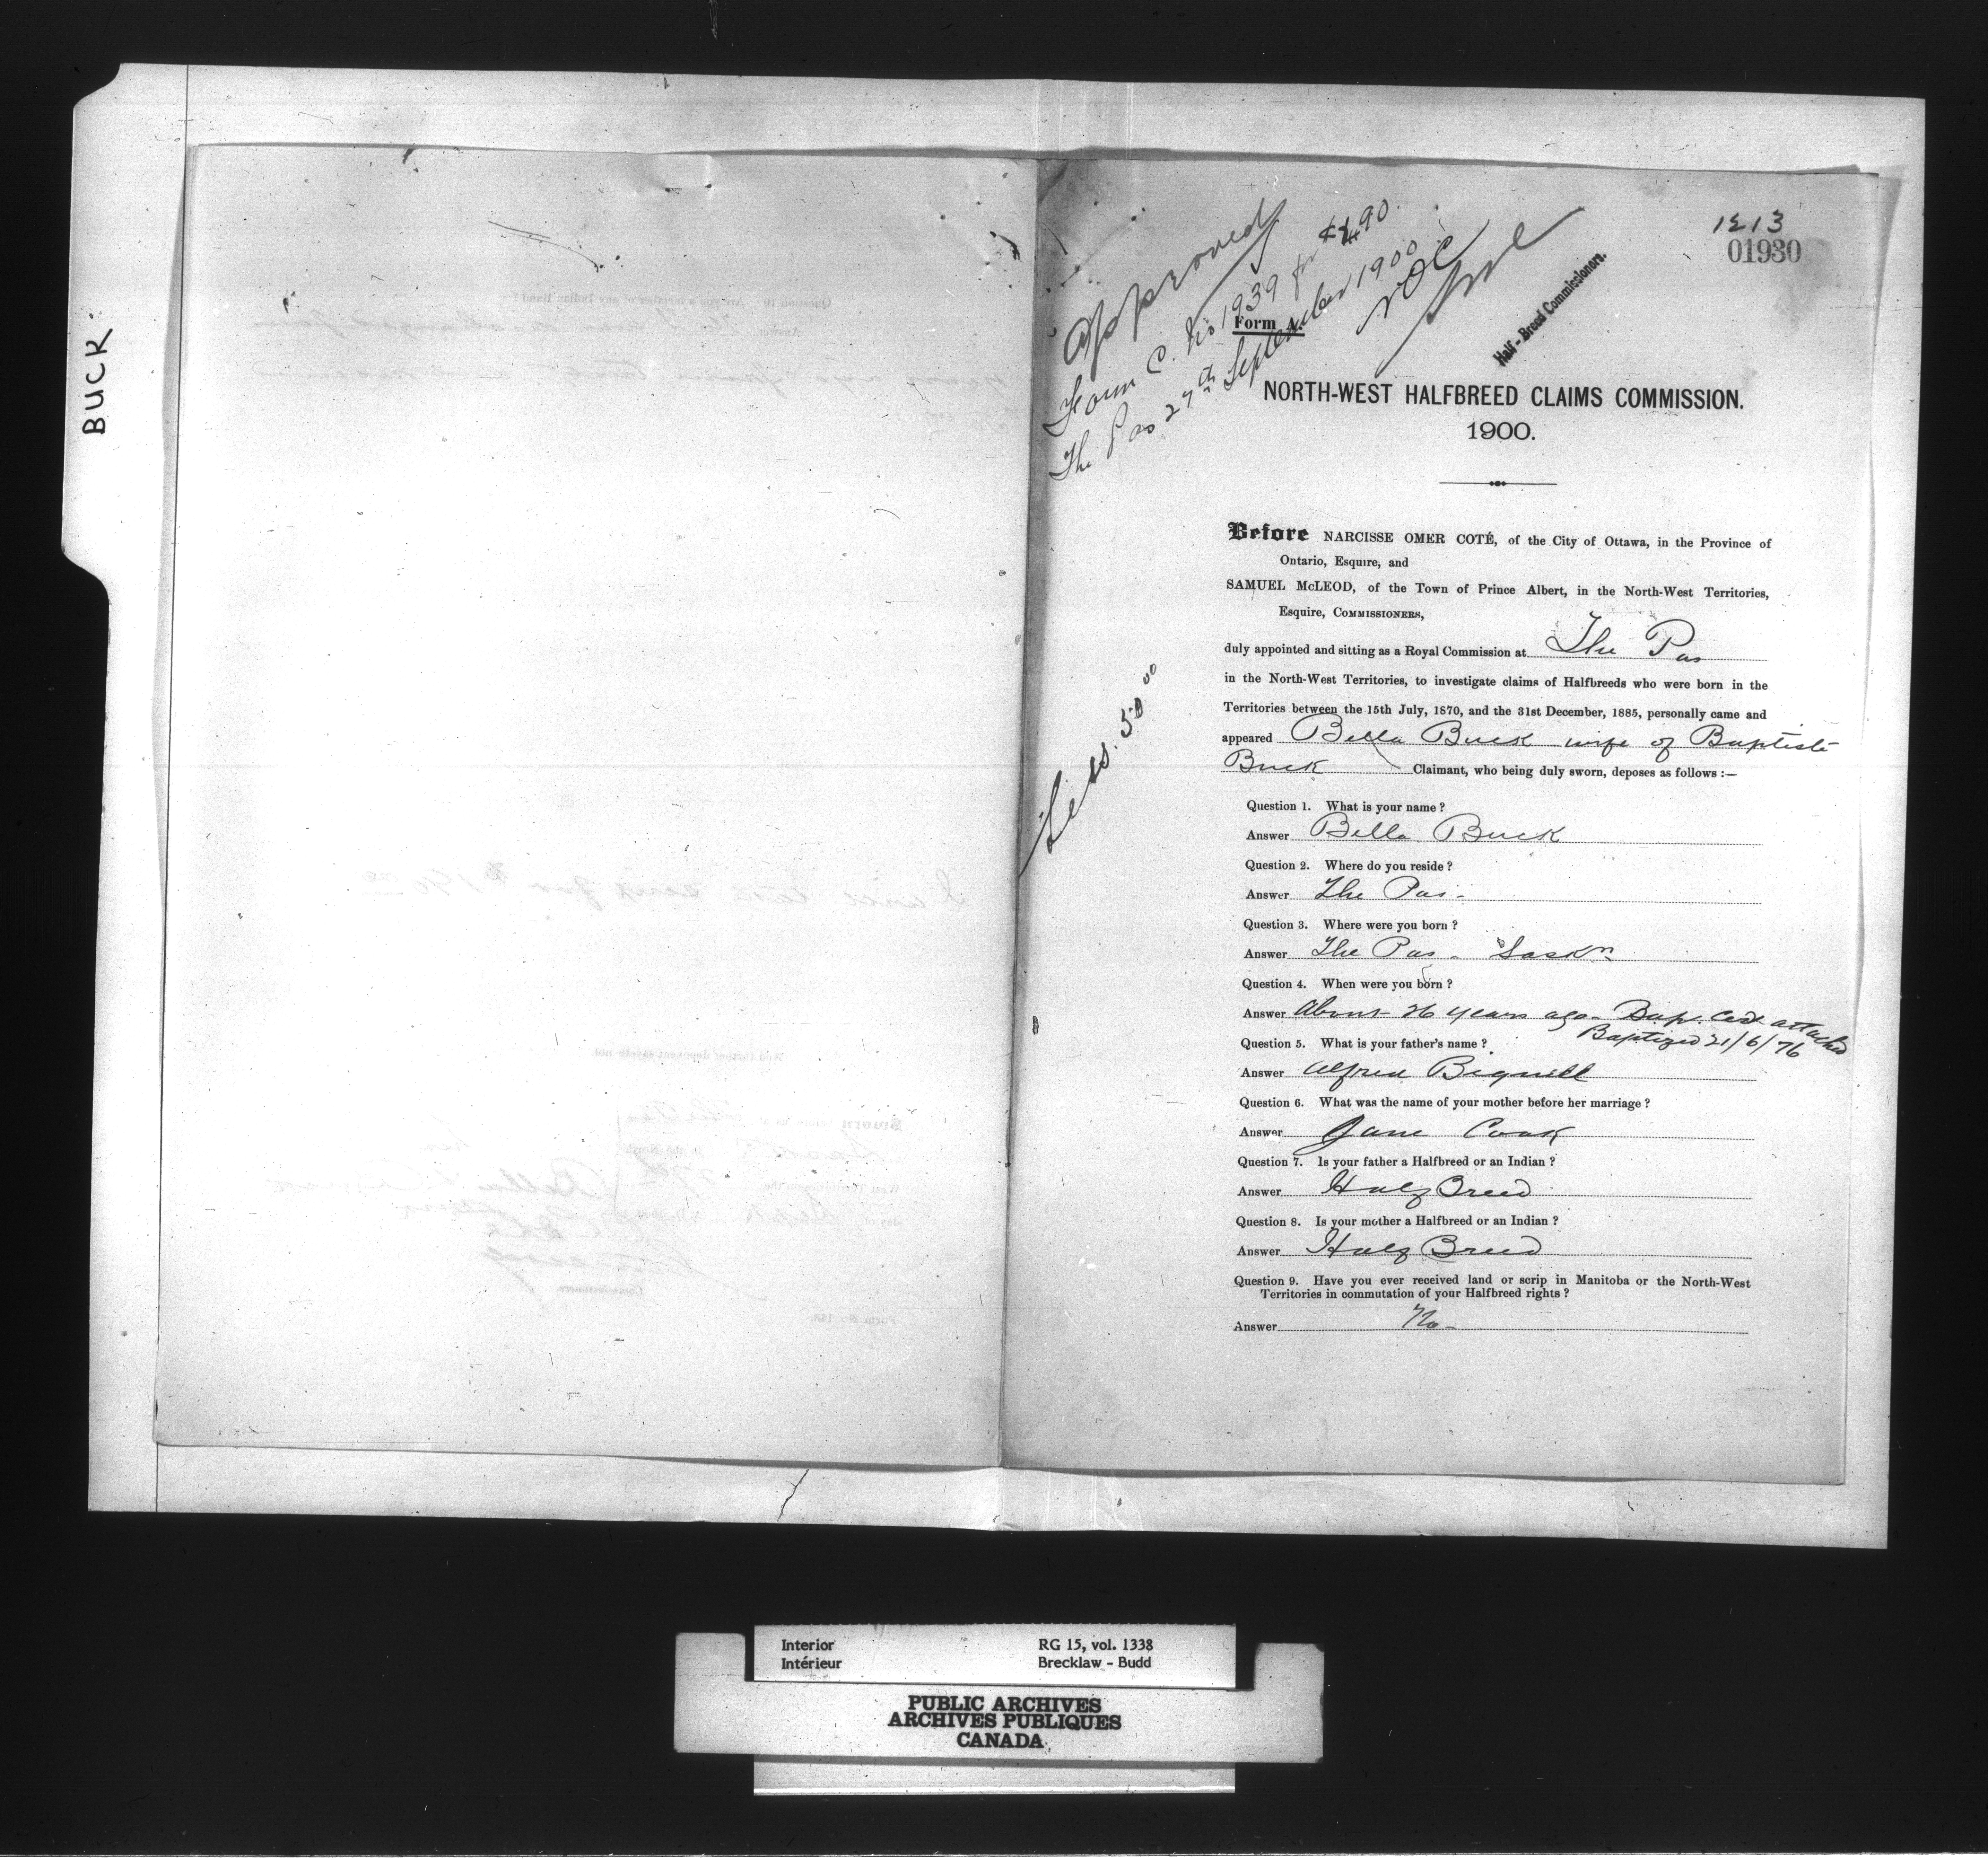 BUCK
1213
01930
Approved
Form C. No 1939 for $190
The Pas 27th September 1900
NOC
Half-Breed Commissioners.
Form A.
NORTH-WEST HALFBREED CLAIMS COMMISSION.
1900.
Less. 50 00
Before NARCISSE OMER COTÉ, of the City of Ottawa, in the Province of
Ontario, Esquire, and
SAMUEL McLEOD, of the Town of Prince Albert, in the North-West Territories,
Esquire, COMMISSIONERS,
duly appointed and sitting as a Royal Commission at The Pas
in the North-West Territories, to investigate claims of Halfbreeds who were born in the
Territories between the 15th July, 1870, and the 31st December, 1885, personally came and
appeared Bella Buck wife of Baptiste
Buck Claimant, who being duly sworn, deposes as follows :—
Question 1. What is your name ?
Answer Bella Buck
Question 2. Where do you reside ?
Answer The Pas -
Question 3. Where were you born ?
Answer The Pas - Saskn
Question 4. When were you born ?
Answer About 26 years ago - Bap. Cert attached
Baptized 21/6/76
Question 5. What is your father's name ?
Answer Alfred Bignell
Question 6. What was the name of your mother before her marriage ?
Answer Jane Cook
Question 7. Is your father a Halfbreed or an Indian ?
Answer Half Breed
Question 8. Is your mother a Halfbreed or an Indian ?
Answer Half Breed
Question 9. Have you ever received land or scrip in Manitoba or the North-West
Territories in commutation of your Halfbreed rights ?
Answer No -
Interior RG 15, vol. 1338
Intérieur Brecklaw - Budd
PUBLIC ARCHIVES
ARCHIVES PUBLIQUES
CANADA